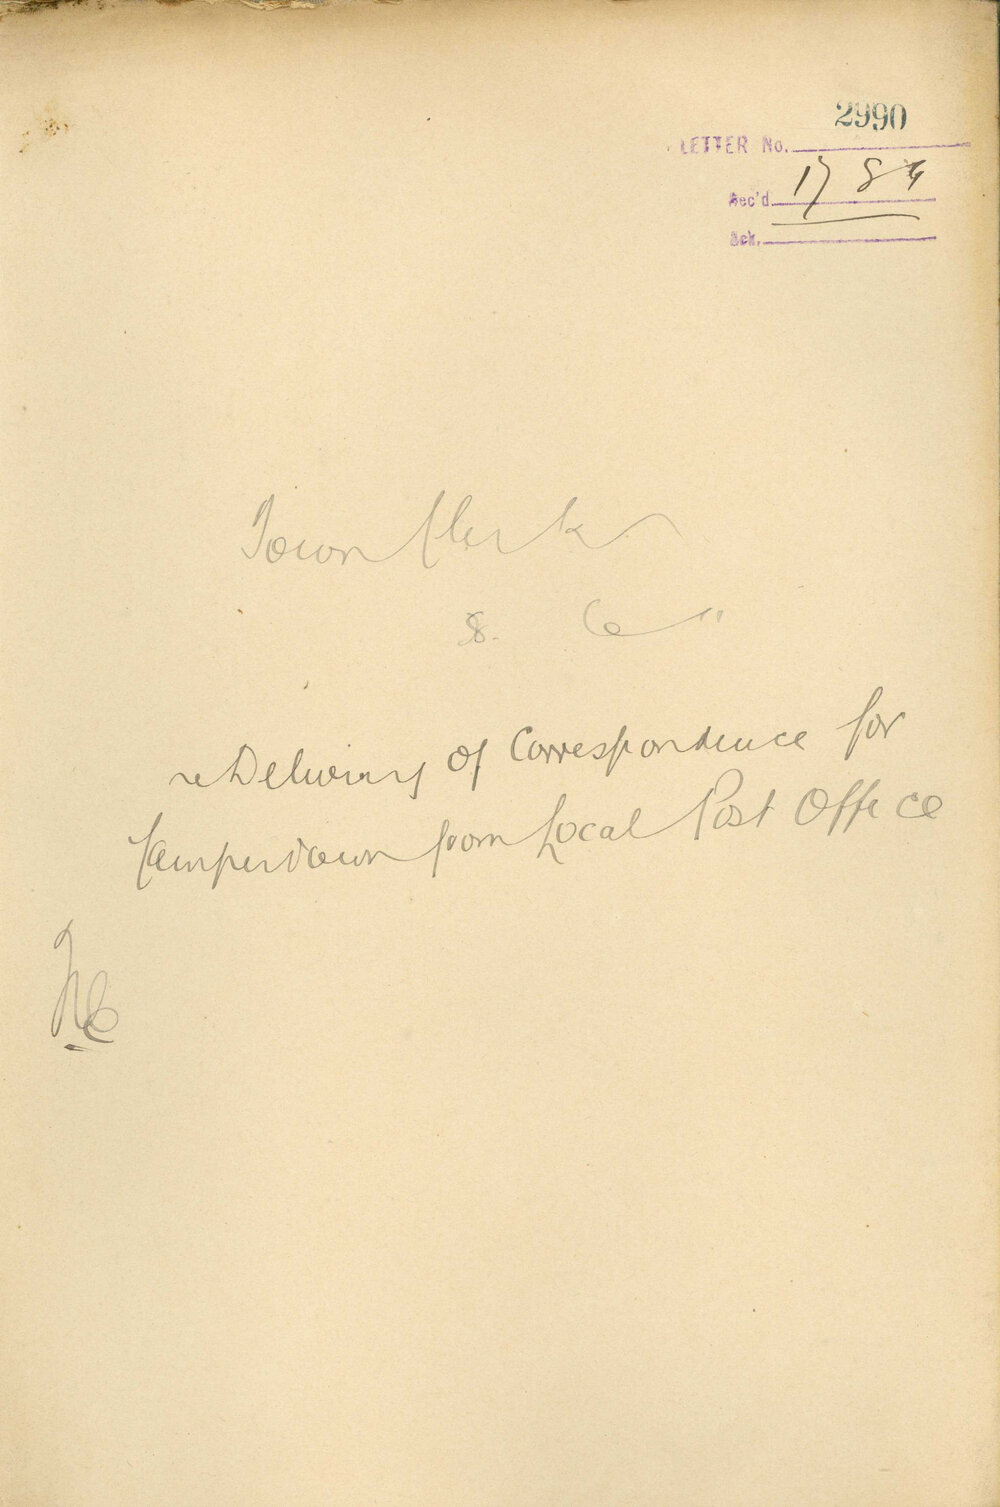 2990
LETTER No.
Rec'd 17 8
Ack.
Town Clerk
re Delivery of Correspondence for
Camperdown from Local Post Office